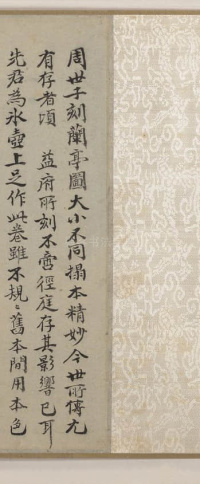 周世子刻蘭亭圖大小不同搨本精妙今世所傳尤
有存者頃 益府所刻不啻徑庭存其影響已耳
先君為氷壺上足作此卷雖不規〻舊本間用本色